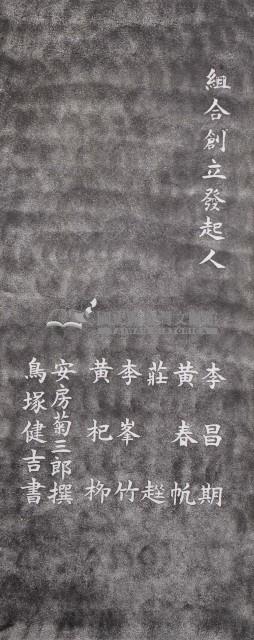 組合創立發起人
李昌期
黃春帆
莊趖
李峯竹
黃杞柳
安房菊三郎撰
鳥塚健吉書